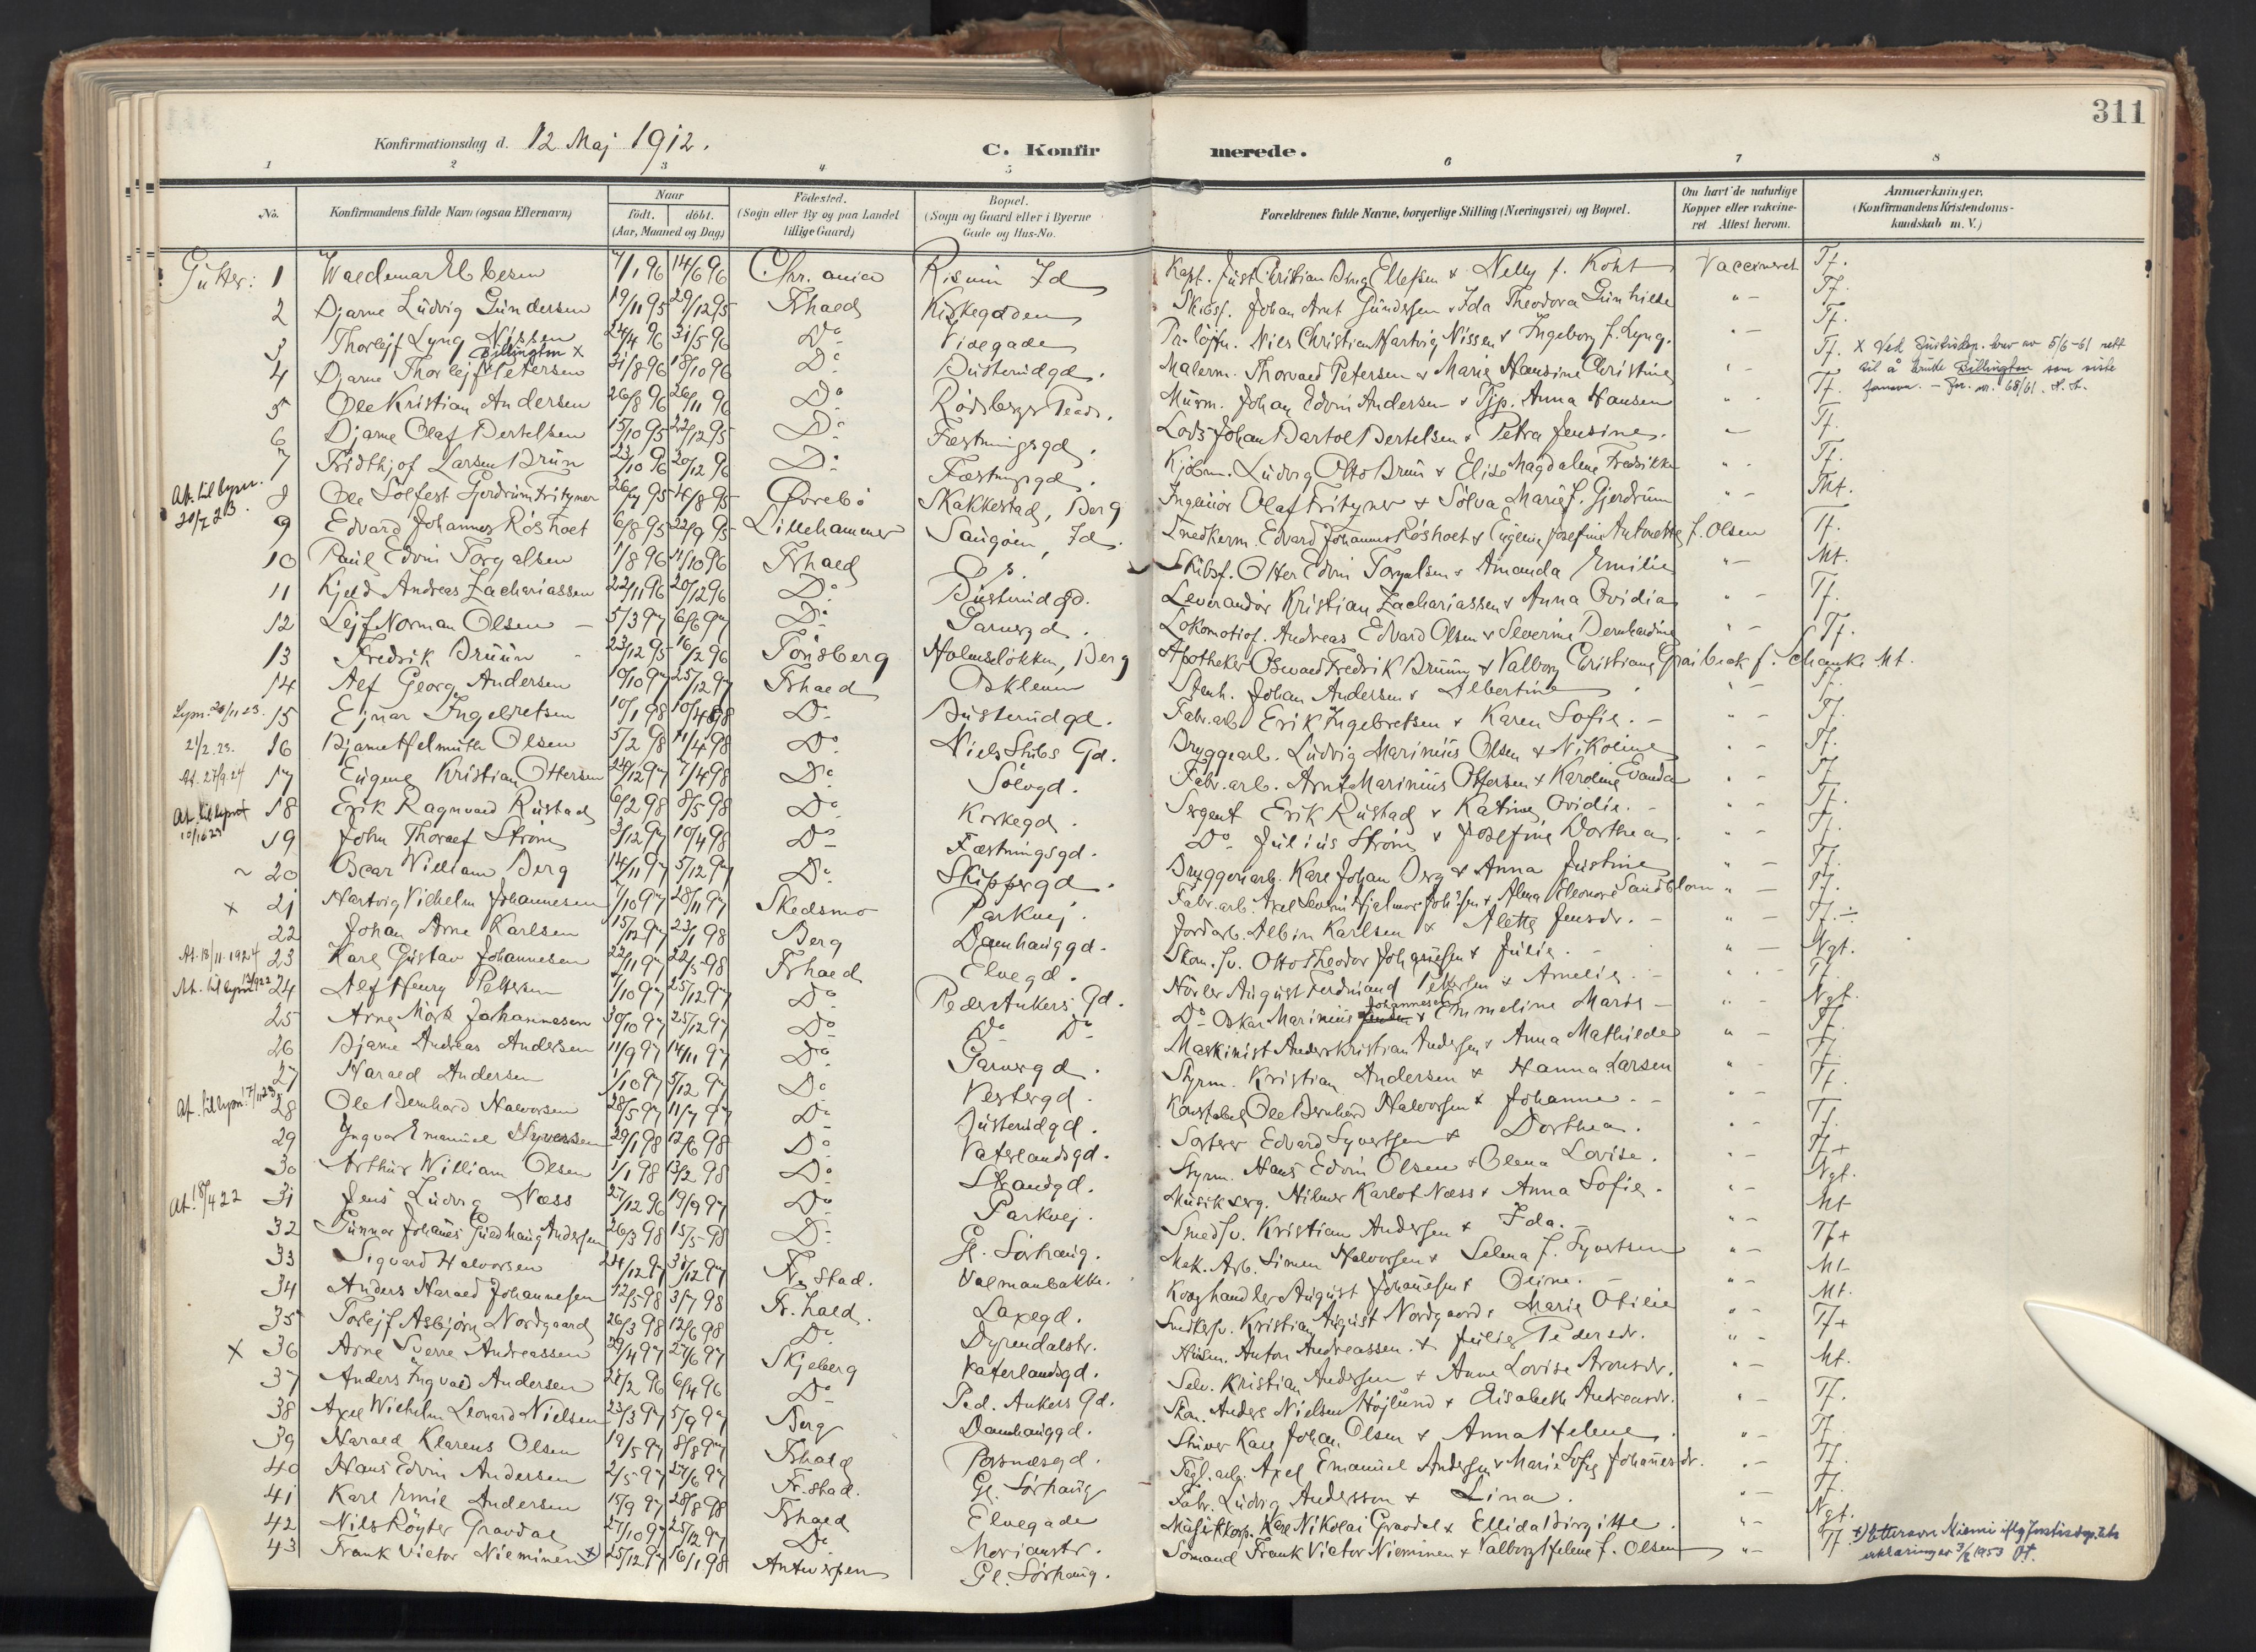 311
Konfirmationsdag d. 12 Maj 1912.
C. Konfirmerede.
1 2 3 4 5 6 7 8
No. Konfirmandens fulde Navn (ogsaa Efternavn) Naar födt. döbt. (Aar, Maaned og Dag) Födested. (Sogn eller By og paa Landet tillige Gaard) Bopæl. (Sogn og Gaard eller i Byerne Gade og Hus-No. Forældrenes fulde Navne, borgerlige Stilling (Næringsvei) og Bopæl. Om havt de naturlige Kopper eller vakcineret Attest herom. Anmærkninger. (Konfirmandens Kristendomskundskab m. V.)
Gutter: 1 Waldemar 7/1 96 14/6 96 Chr.ania Id Kapt. Just Christian Ellefsen & Nelly f. Koht Vaccineret Tf.
2 Bjarne Ludvig Gundersen 19/11 95 29/12 95 Frhald Kirkegaden Skibsf. Johan Arnt Gundersen & Ida Theodora Gunhilde " - Tf.
3 Thorlejf Lyng Nissen 24/4 96 31/5 96 Do Videgade Pr.löjtn. Niels Christian Hartvig Nissen & Ingeborg f. Lyng. " - Tf.
4 Bjarne Thorlejf Petersen Billington x 31/8 96 18/10 96 Do Busterudgd. Malerm. Thorvald Petersen & Marie Hansine Christine " - Tf. X Ved Justisdep. brev av 5/6-61 rett til å bruke Billington som siste fornavn. - Jnr. nr. 68/61.
5 Ole Kristian Andersen 26/8 96 26/11 96 Do Rödsbergs Murm. Johan Edvin Andersen & Anna Hansen " - Tf.
6 Bjarne Olaf Bertelsen 15/10 95 22/12 95 Do Fæstningsgd. Lods Johan Bartol Bertelsen & Petra Jensine. " - Tf.
7 Fridthjof Larsen Brun 23/10 96 20/12 96 Do Fæstningsgd. Kjöbm. Ludvig Otto Brun & Elise Magdalene Fredrikke " - Tf.
At. til lysn. 20/7 23. 8 Ole Solfest Gjerdrum Fritzner 26/7 95 4/8 95 Øvrebö Skakkestad, Berg Ingeniör Olaf Fritzner & Sölva Marie f. Gjerdrum " -
9 Edvard Johannes Röshoet 6/8 95 22/9 95 Lillehammer Saugöen, Id. Snedkerm. Edvard Johannes Röshoet & Eugenie Josefine Antonette f. Olsen Tf.
10 Paul Edvin Torgalsen 1/8 96 11/10 96 Frhald Os. Skibsf. Otter Edvin Torgalsen & Amanda Emilie " - Mt.
11 Kjeld Andreas Zachariassen 22/11 96 20/12 96 Do Busterudgd. Leverandör Kristian Zachariassen & Anna Ovidia " - Tf.
12 Lejf Norman Olsen 5/3 97 6/6 97 Do Garvergd. Lokomotivf. Andreas Edvard Olsen & Severine Bernhardine " - Tf.
13 Fredrik Bruun 23/12 95 16/2 96 Tönsberg Holmelökken, Berg Apotheker Osvald Fredrik Bruun & Valborg Christiane f. Schanke Mt.
14 Alf Georg Andersen 10/10 97 25/12 97 Frhald Oskleven Johan Andersen & Albertine " - Tf.
Lysn. 20/11 23. 15 Ejnar Ingebretsen 10/1 98 10/4 98 Do Busterudgd. Fabr.arb. Erik Ingebretsen & Karen Sofie. - " - Tf.
21/2. 23. 16 Bjarne Helmuth Olsen 5/2 98 11/4 98 Do Niels Stubs Gd. Bryggearb. Ludvig Marinius Olsen & Nikoline " - Tf.
At. 27/9. 24 17 Eugene Kristian Ottersen 24/12 97 7/4 98 Do Sölvgd. Fabr.arb. Arnt Marinius Ottersen & Karoline Evanda " - Tf
At. til lysn. 10/10 23 18 Erik Ragnvald Rustad 6/2 98 8/5 98 Do Kirkegd. Sergent Erik Rustad & Katinka Ovidie. - " - Tf.
19 John Thoralf Ström 3/12 97 10/4 98 Do Fæstningsgd. Do Julius Ström & Josefine Dorthea. " - Tf.
~ 20 Oscar William Berg 14/11 97 5/12 97 Do Skippergd. Bryggeriarb. Karl Johan Berg & Anna Justine " - Tf.
x 21 Hartvig Vilhelm Johannesen 1/10 97 28/11 97 Skedsmo Parkvej. Fabr.arb. Axel Severin Hjalmar Joh'sen & Alma Eleonore Sandblom " - Tf.
22 Johan Arne Karlsen 15/12 97 23/1 98 Berg Damhauggd. Jordarb. Albin Karlsen & Alette Jensdr. - " - Tf. ÷
At. 18/11. 1924 23 Karl Gustav Johannesen 22/11 97 22/5 98 Frhald Elvegd. Skom.sv. Otto Theodor Johannesen & Julie. - " - Ngt.
At. til lysn. 24 Alf Henry Pettersen 7/10 97 25/12 97 Do Peder Ankers Gd. August Ferdinand Pettersen & Amelie. - " - Tf.
25 Arne Mörk Johannesen 30/10 97 25/12 97 Do Do Do Do Oskar Marinius Johannesen & Emmeline Marie - " - Ngt.
26 Bjarne Andreas Andersen 11/9 97 14/11 97 Do Garvergd. Maskinist Anders Kristian Andersen & Anna Mathilde " - Tf.
27 Harald Andersen 1/10 97 5/12 97 Do Vestergd. Styrm. Kristian Andersen & Hanna Larsen " - Tf.
At. til lysn. 17/11 23 28 Ole Bernhard Halvorsen 28/5 97 11/7 97 Do Busterudgd. Konstabel Ole Bernhard Halvorsen & Johanne. - " - Tf.
29 Yngvar Emanuel Syversen 29/1 98 12/6 98 Do Vaterlandsgd. Sorterer Edvard Syvertsen & Dorthea. " - Tf.
30 Arthur William Olsen 1/1 98 13/2 98 Do Strandgd. Styrm. Hans Edvin Olsen & Olena Lovise. " - Tf+
At. 18/4 22 31 Jens Ludvig Næss 27/12 96 19/9 97 Do Parkvej. Musikserg. Hilmer Karlot Næss & Anna Sofie. " - Ngt.
32 Gunnar Johannes Guldhaug Andersen 26/3 98 15/5 98 Do Gl. Sörhaug. Smedsv. Kristian Andersen & Ida. - " - Mt
33 Sigvard Halvorsen 24/12 97 31/12 97 Fr.stad. Valmanbakke. Mek. Arb. Simen Halvorsen & Selma f. Syvertsen " - Tf+
34 Anders Harald Johannesen 12/5 98 3/7 98 Fr.hald. Laxegd. Kooghandler August Johannesen & Oline. - " - Mt
35 Torlejf Asbjörn Nordgaard 26/3 98 12/6 98 Do Dyrendalstr. Snedkersv. Kristian August Nordgaard & Marie Otilie " - Mt.
X 36 Arne Sverre Andreassen 29/4 97 27/6 97 Skjeberg Vaterlandsgd. Anton Andreassen & Julie Pedersdr. " - Tf+
37 Anders Ingvald Andersen 21/2 96 6/4 96 Do Ped. Ankers Gd. Selv. Kristian Andersen & Anne Lovise Aronsdr. " - Mt.
38 Axel Wilhelm Leonard Nielsen 23/3 97 5/9 97 Berg Damhauggd. Skom. Anders Nielsen Höjlund & Elisabeth Andreasdr. " - Tf.
39 Harald Klarens Olsen 19/5 97 8/8 97 Frhald Porsnæsgd. Stuver Karl Johan Olsen & Anna Helene. " - Tf.
40 Hans Edvin Andersen 2/5 97 27/6 97 Fr.stad. Gl. Sörhaug Tegl.arb. Axel Emanuel Andersen & Marie Sofie Johannesdr. " - Tf.
41 Karl Emil Andersen 15/9 97 28/8 98 Frhald Elvegade Fabr. Ludvig Andersson & Lina. " - Tf.
42 Nils Röyter Gravdal 27/10 97 25/12 97 Do Morianstr. Musikkorp. Karl Nikolai Gravdal & Ellida Birgitte. " - Ngt.
43 Frank Victor Nieminen x) 25/12 97 16/1 98 Antwerpen Gl. Sörhaug. Sömand Frank Victor Nieminen & Valborg Helene f. Olsen " - Tf. x) Etternavn Niemi iflg Justisdep.ets erklæring av 3/2 1953